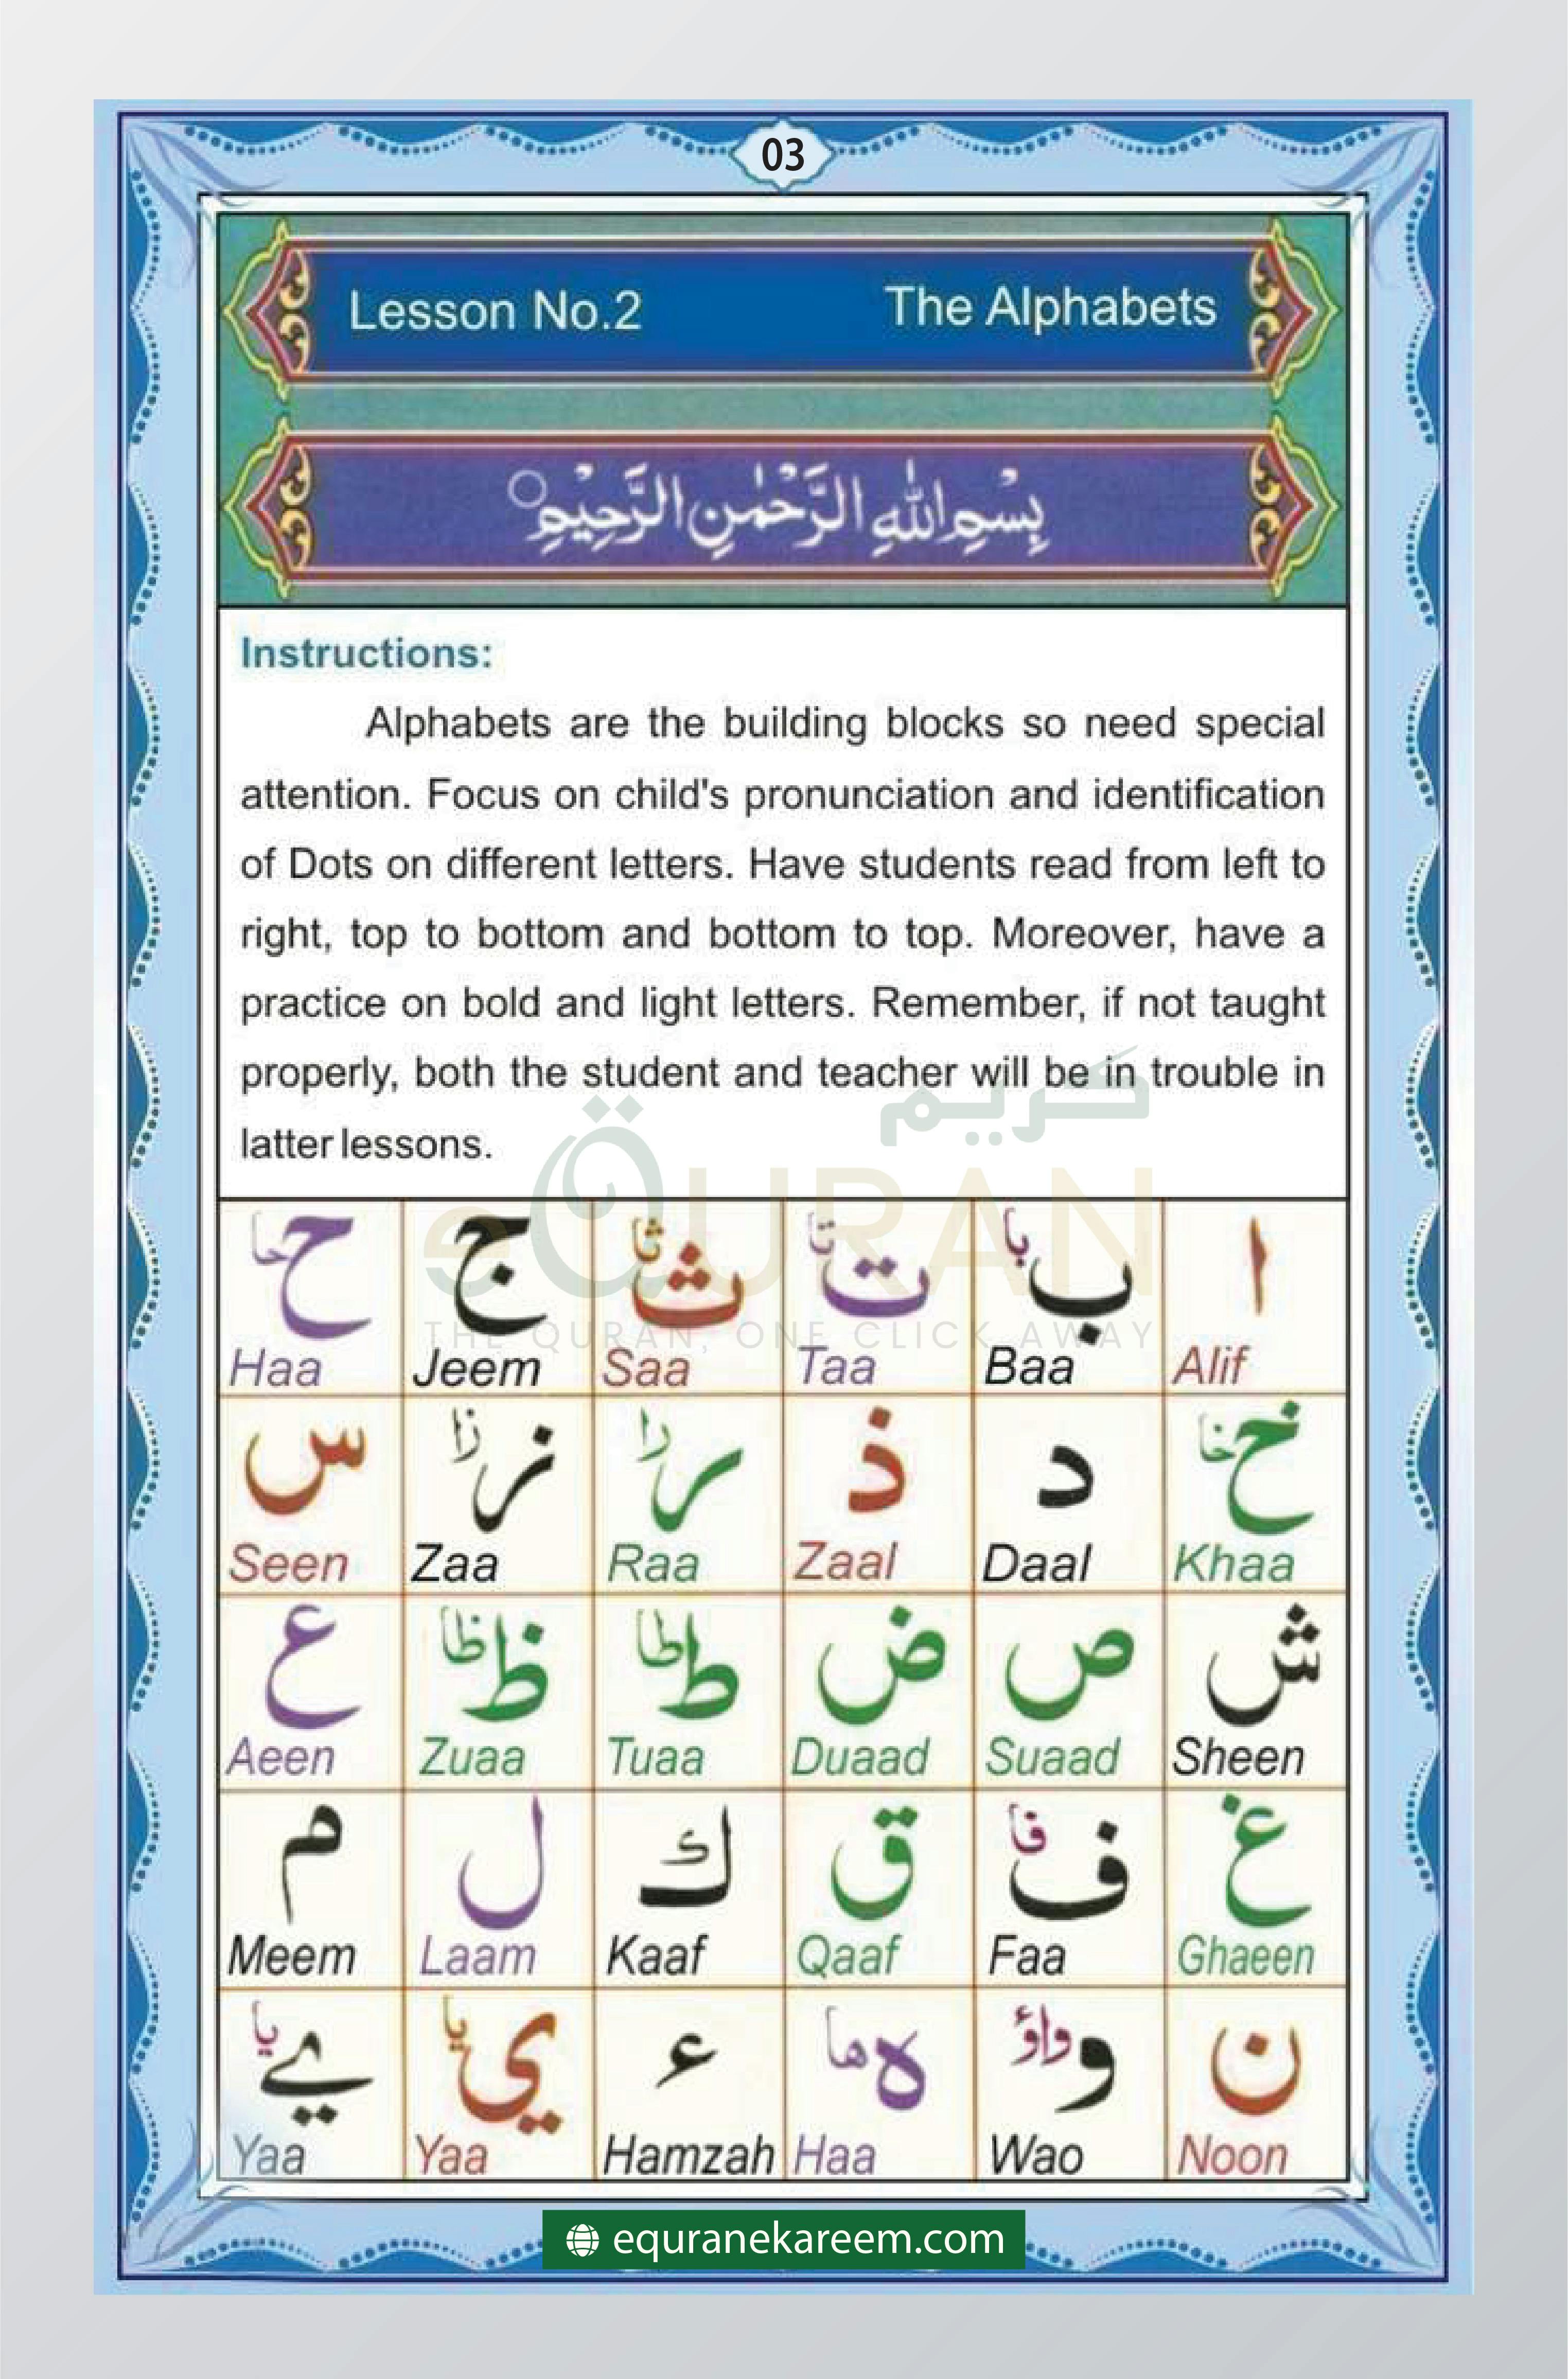 03
Lesson No.2 The Alphabets
بِسْمِ اللّٰهِ الرَّحْمٰنِ الرَّحِيْمِ○
Instructions:
Alphabets are the building blocks so need special
attention. Focus on child's pronunciation and identification
of Dots on different letters. Have students read from left to
right, top to bottom and bottom to top. Moreover, have a
practice on bold and light letters. Remember, if not taught
properly, both the student and teacher will be in trouble in
latter lessons.
كريم
eQURAN
THE QURAN, ONE CLICK AWAY
ا ب با ت تا ث ثا ج ح حا
Haa Jeem Saa Taa Baa Alif
خ خا د ذ ر را ز زا س
Seen Zaa Raa Zaal Daal Khaa
ش ص ض ط طا ظ ظا ع
Aeen Zuaa Tuaa Duaad Suaad Sheen
غ ف فا ق ك ل م
Meem Laam Kaaf Qaaf Faa Ghaeen
ن و واؤ ه ها ء ي يا ے يا
Yaa Yaa Hamzah Haa Wao Noon
equranekareem.com